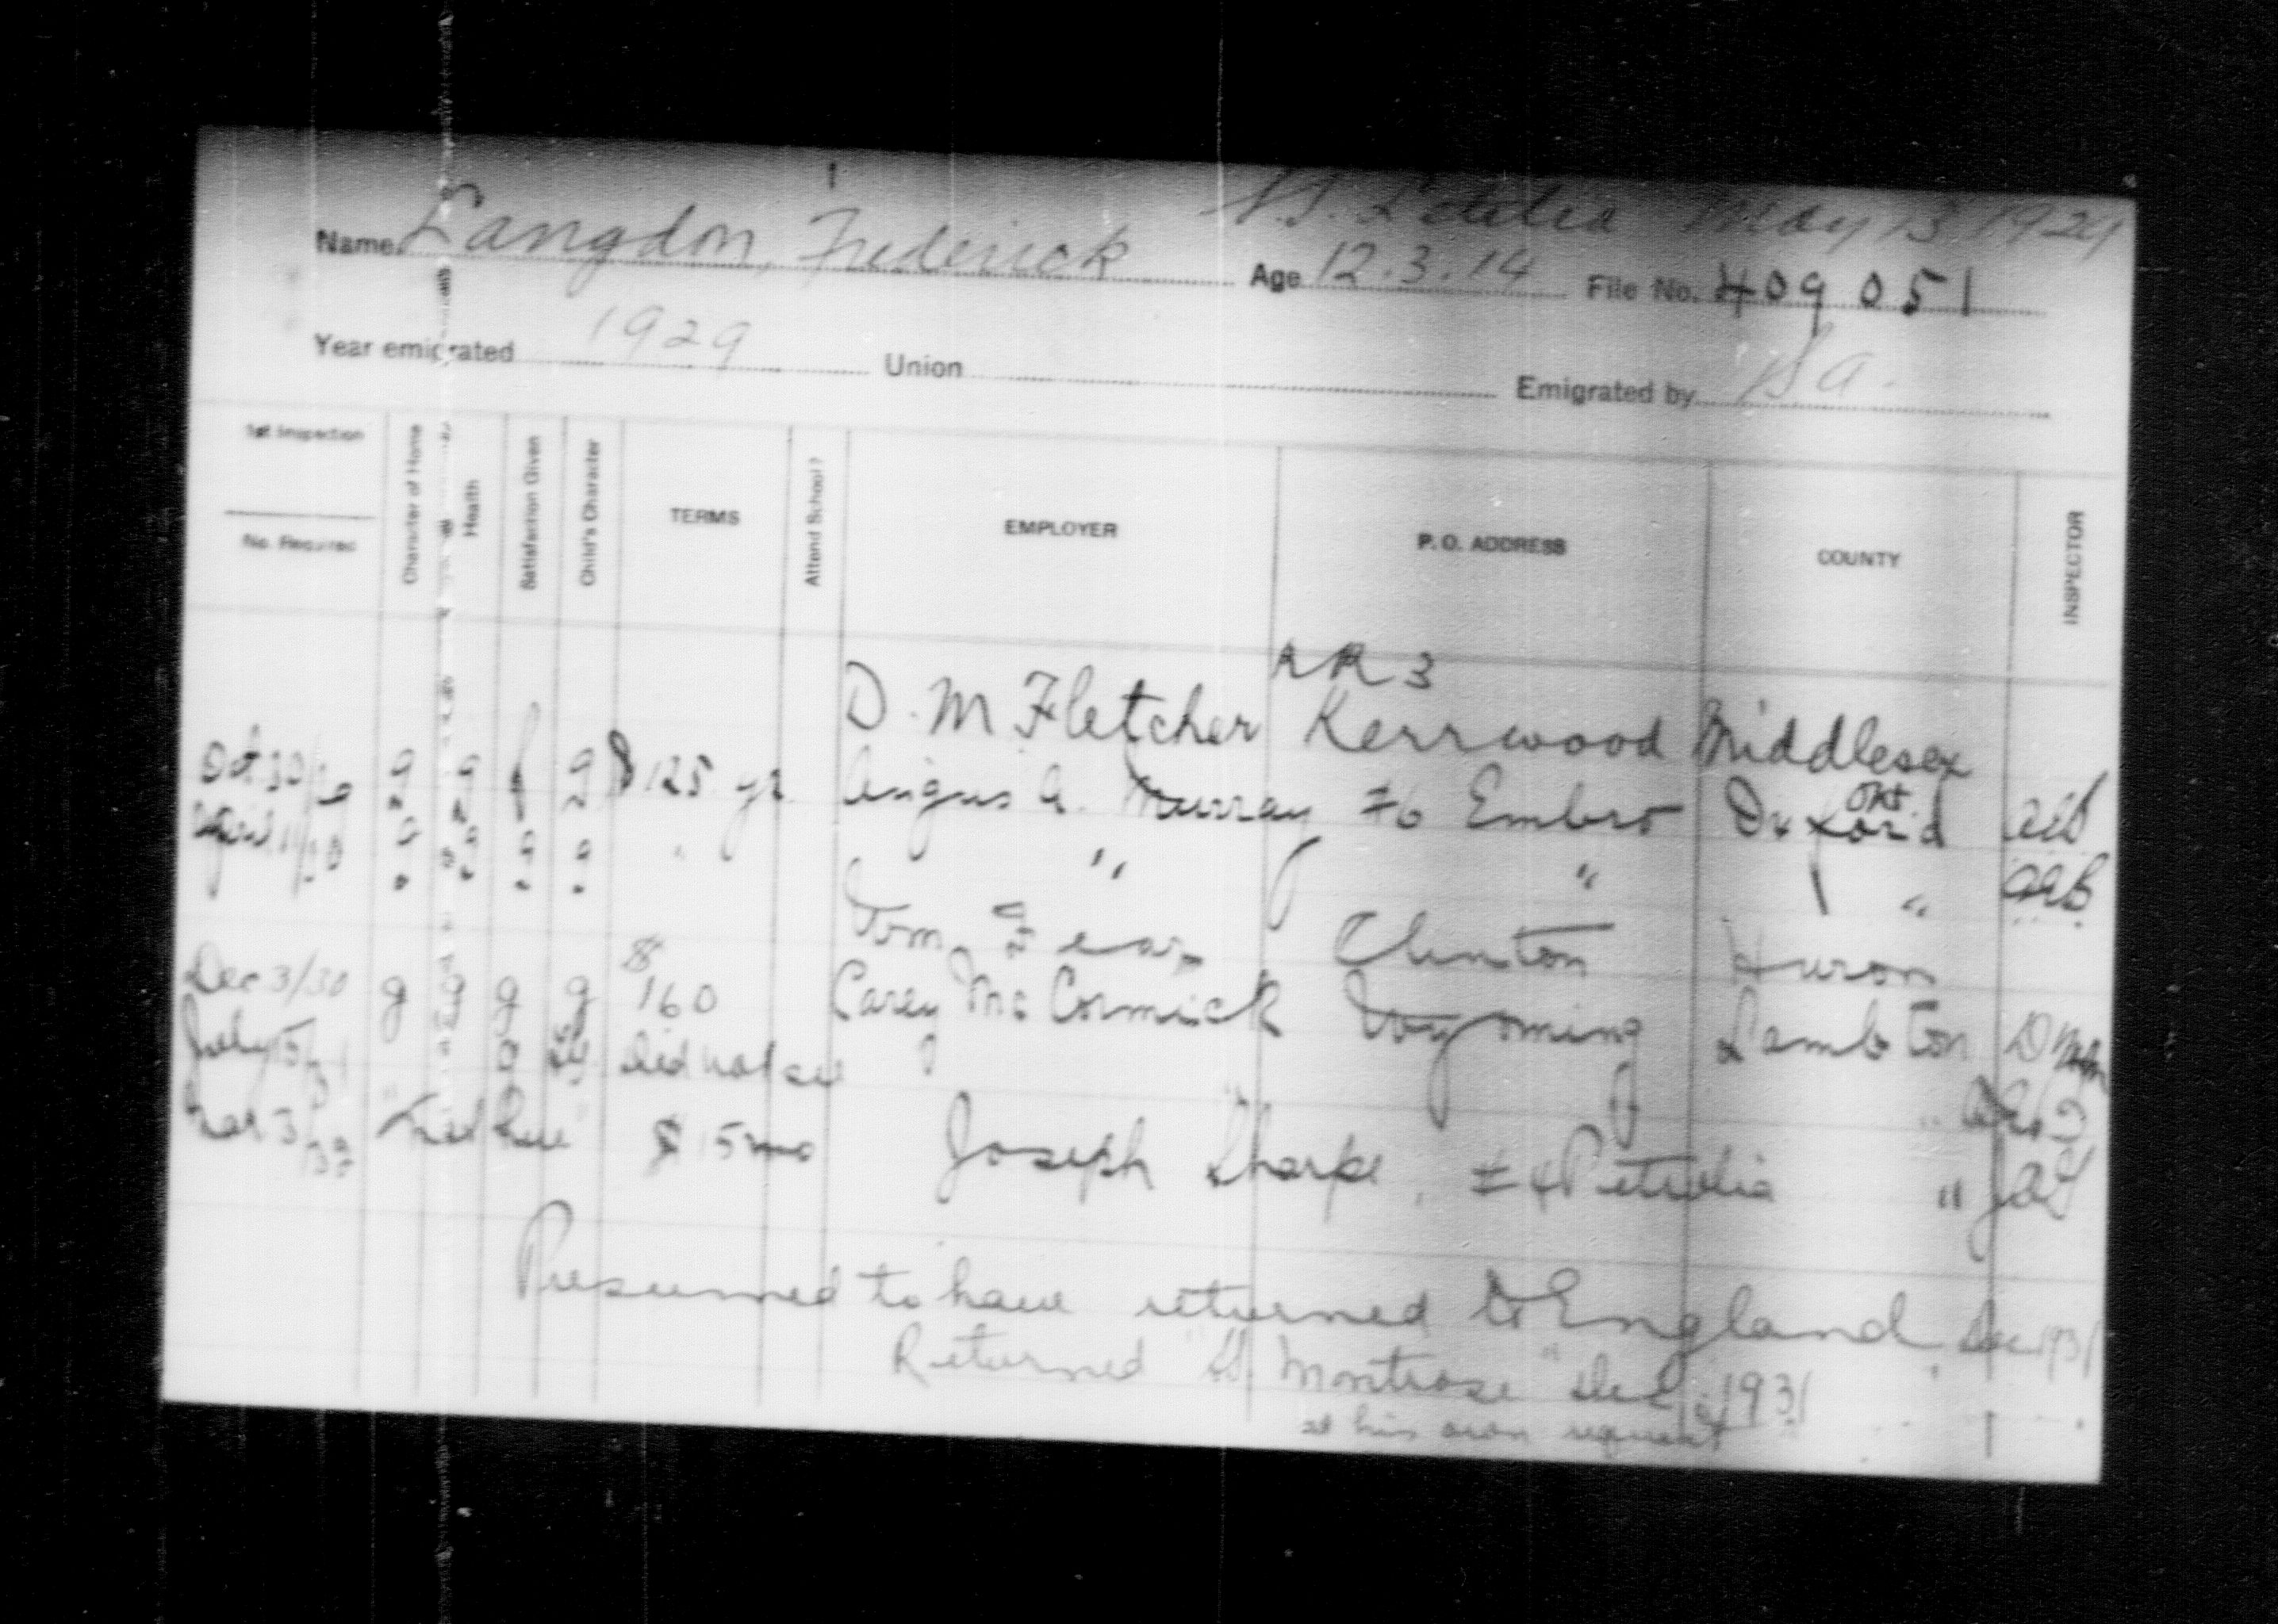 May 13 1929
Name Langdon, Frederick Age 12.3.14 File No. 409051
Year emigrated 1929 Union Emigrated by S.A.
1st Inspection
No. Required
Character of Home
Health
Satisfaction Given
Child's Character
TERMS
Attend School?
EMPLOYER
P. O. ADDRESS
COUNTY
INSPECTOR
RR 3
D. M Fletcher Kerrwood Middlesex
Oct 30/29 g g f g $125 yr Angus A. Murray #6 Embro Oxford Ont
April 11/30 g g g g " " " "
Wm Clinton Huron
Dec 3/30 g g g g $160 Carey McCormick Wyoming Lambton
July 15/31 did not see "
Mar 3/32 Not here $15 mo Joseph Sharpe, #4 Petrolia "
Presumed to have returned to England Dec 1931
Returned "SS Montrose" Dec 1931
at his own request